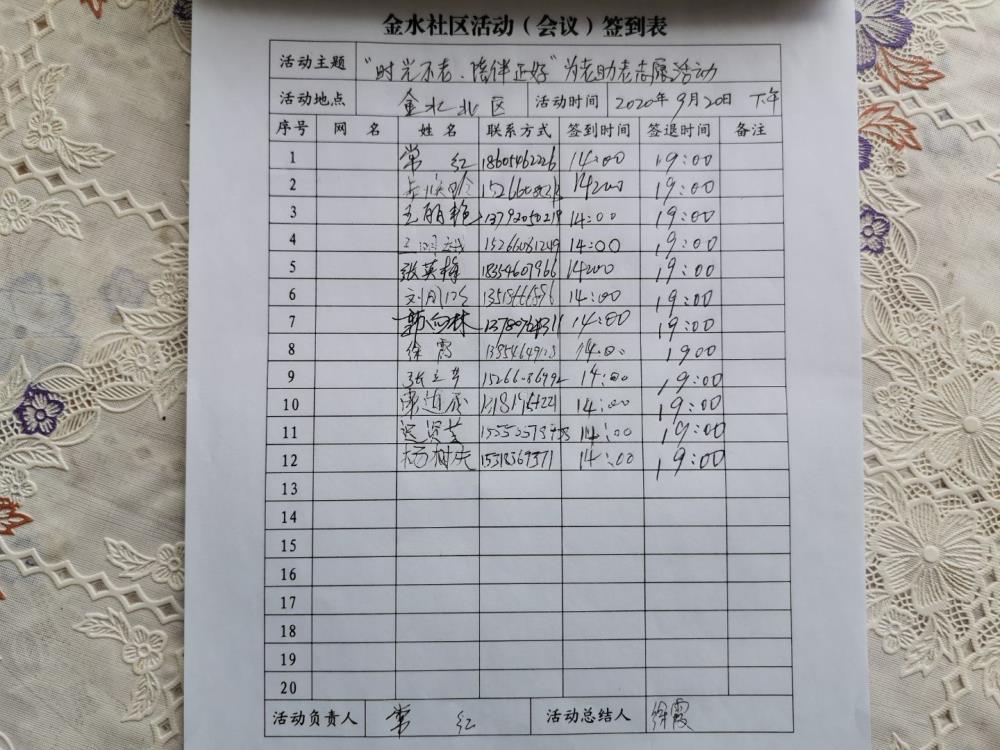 金水社区活动（会议）签到表
活动主题 "时光不老、陪伴正好"为老助老志愿活动
活动地点 金水北区 活动时间 2020年9月20日 下午
序号 网 名 姓 名 联系方式 签到时间 签退时间 备注
1 常 红 18605462226 14:00 19:00
2 14:00 19:00
3 王丽艳 13792050219 14:00 19:00
4 15266081249 14:00 19:00
5 张英梅 18354607966 14:00 19:00
6 14:00 19:00
7 郭向林 14:00 19:00
8 徐霞 14:00 19:00
9 14:00 19:00
10 14:00 19:00
11 14:00 19:00
12 杨树庆 14:00 19:00
13
14
15
16
17
18
19
20
活动负责人 常 红 活动总结人 徐霞